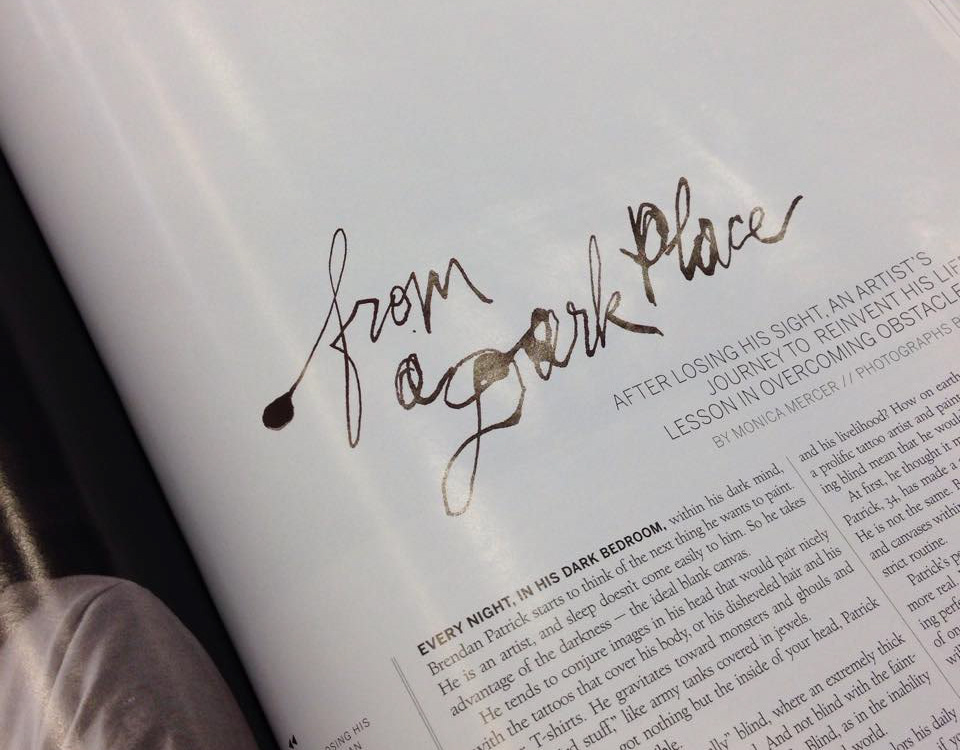 from
a dark Place
AFTER LOSING HIS SIGHT, AN ARTIST'S
JOURNEY TO REINVENT HIS LIFE
LESSON IN OVERCOMING OBSTACLE
BY MONICA MERCER // PHOTOGRAPHS B
EVERY NIGHT, IN HIS DARK BEDROOM, within his dark mind,
Brendan Patrick starts to think of the next thing he wants to paint.
He is an artist, and sleep doesn't come easily to him. So he takes
advantage of the darkness — the ideal blank canvas.
He tends to conjure images in his head that would pair nicely
with the tattoos that cover his body, or his disheveled hair and his
T-shirts. He gravitates toward monsters and ghouls and
stuff," like army tanks covered in jewels.
got nothing but the inside of your head, Patrick
blind, where an extremely thick
And not blind with the faint-
blind, as in the inability
world.
and his livelihood? How on earth
a prolific tattoo artist and paint
ing blind mean that he would
At first, he thought it m
Patrick, 34, has made a
He is not the same. B
and canvases within
strict routine.
Patrick's pe
more real
ing perf
of on
OSING HIS
AN
"